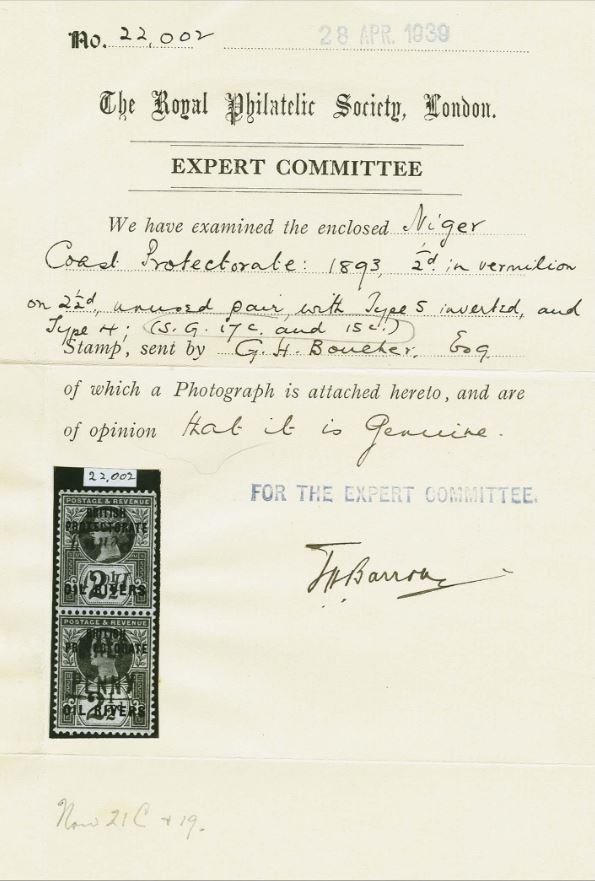 No. 22,002 28 APR. 1939
The Royal Philatelic Society, London.
EXPERT COMMITTEE
We have examined the enclosed Niger
Coast Protectorate: 1893, ½d. in vermilion
on 2½d, unused pair, with Type 5 inverted, and
Type 4; (S.G. 17c. and 15c.)
Stamp, sent by G. H. Boucher, Esq
of which a Photograph is attached hereto, and are
of opinion that it is Genuine.
22,002
FOR THE EXPERT COMMITTEE.
POSTAGE & REVENUE
BRITISH
PROTECTORATE
2½
OIL RIVERS
POSTAGE & REVENUE
BRITISH
PROTECTORATE
HALF
PENNY
2½
OIL RIVERS
Now 21C + 19.